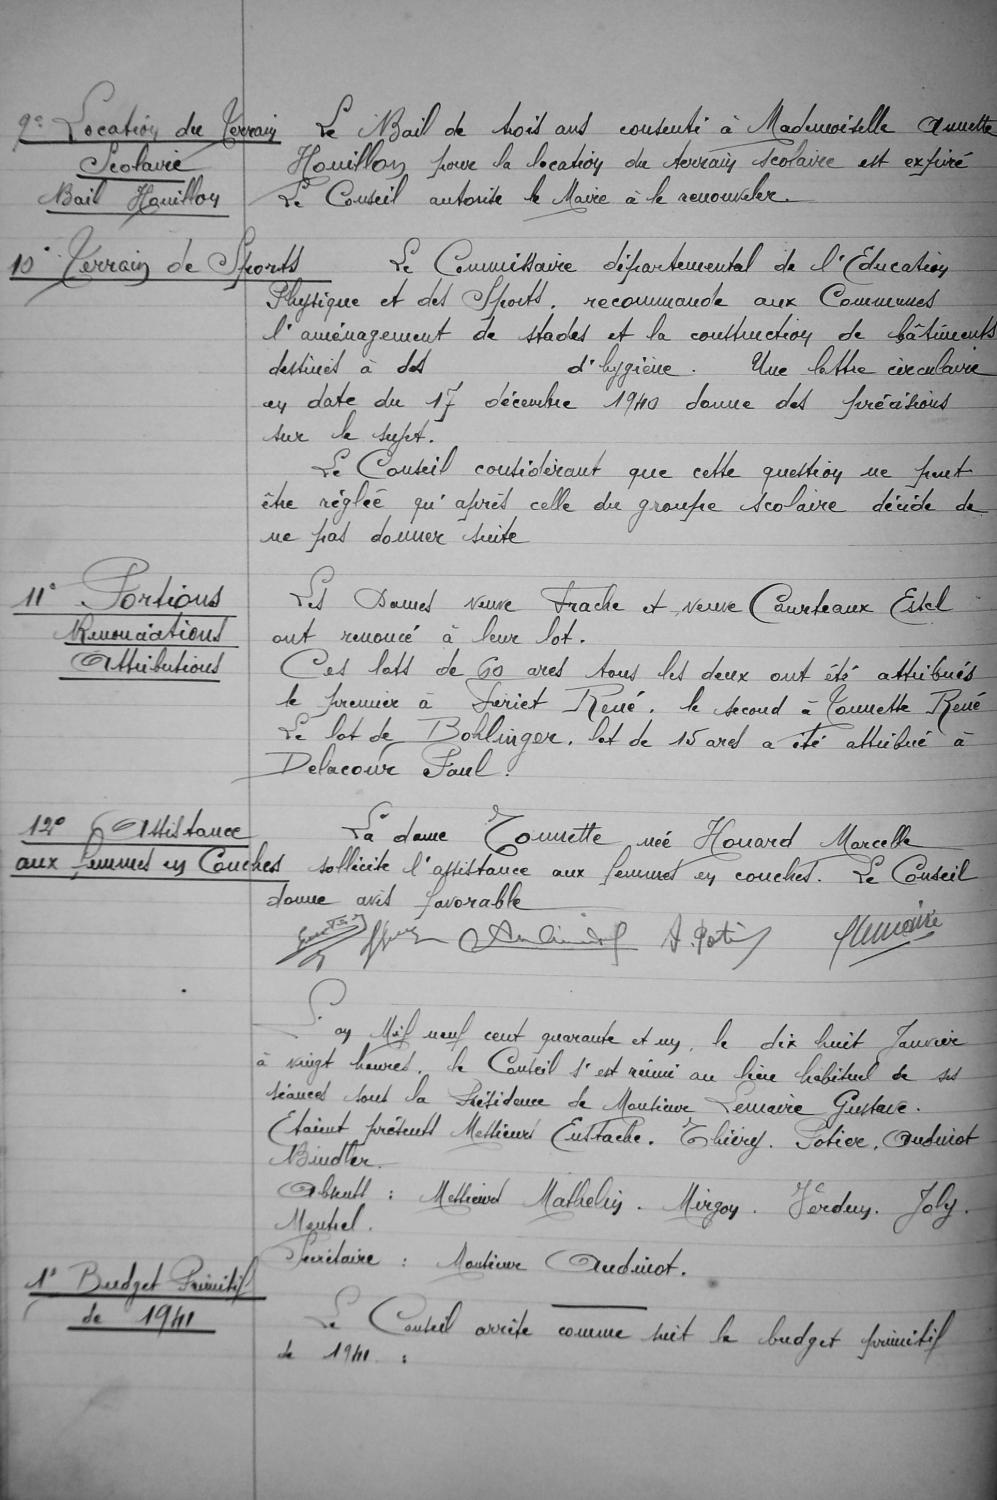 9° Location du Terrain
Scolaire
Bail Houillon
Le Bail de trois ans consenti à Mademoiselle Annette
Houillon pour la location du terrain scolaire est expiré
Le Conseil autorise le Maire à le renouveler.
10° Terrain de Sports
Le Commissaire départemental de l'Education
Physique et des Sports, recommande aux Communes
l'aménagement de stades et la construction de bâtiments
destinés à des d'hygiène. Une lettre circulaire
en date du 17 décembre 1940 donne des précisions
sur le sujet.
Le Conseil considérant que cette question ne peut
être réglée qu'après celle du groupe scolaire décide de
ne pas donner suite
11° Portions
Renonciations
Attributions
Les Dames veuve Frache et veuve Courteaux Estel
ont renoncé à leur lot.
Ces lots de 60 ares tous les deux ont été attribués
le premier à Feriet René, le second à Tounette René
Le lot de Bohlinger, lot de 15 ares a été attribué à
Delacour Paul.
12° Assistance
aux femmes en Couches
La dame Tounette née Houard Marcelle
sollicite l'assistance aux femmes en couches. Le Conseil
donne avis favorable
A. Potier Lemaire
L'an Mil neuf cent quarante et un, le dix huit Janvier
à vingt heures, le Conseil s'est réuni au lieu habituel de ses
séances sous la Présidence de Monsieur Lemaire Gustave.
Etaient présents Messieurs Eustache, Thiéry, Potier, Audinot
Bindler.
Absents : Messieurs Mathelin, Mirgon, Verdun, Joly,
Menhel.
Secrétaire : Monsieur Audinot.
1° Budget Primitif
de 1941
Le Conseil arrête comme suit le budget primitif
de 1941 :